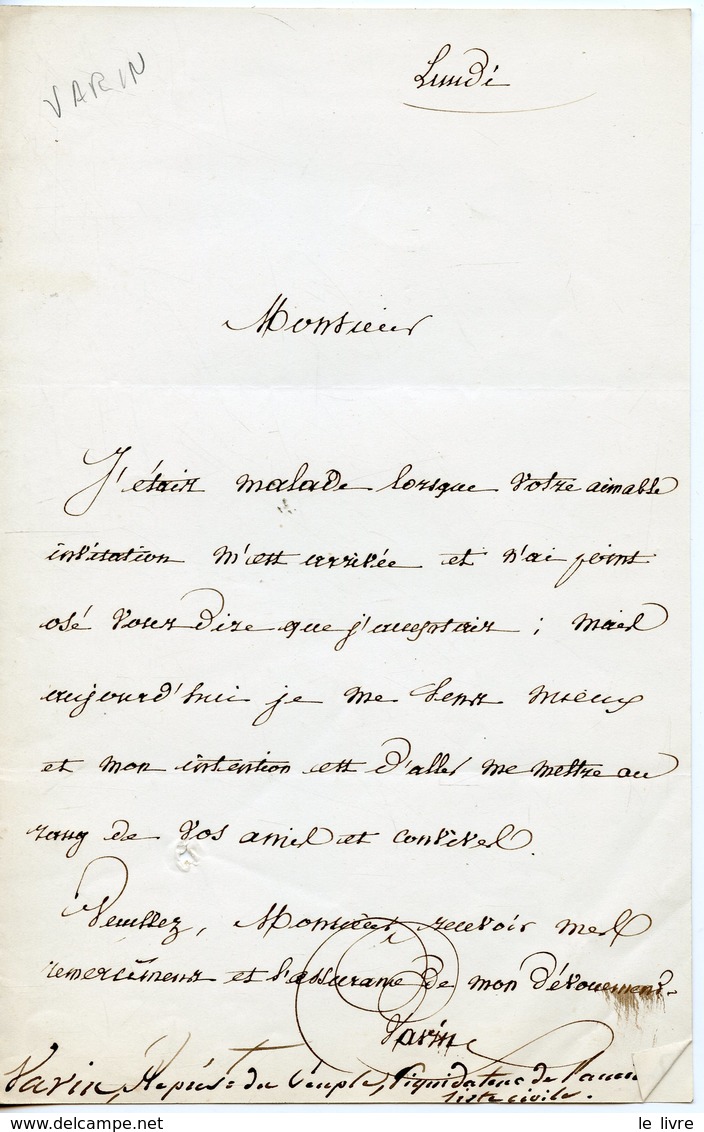 VARIN
Lundi
Monsieur
J'étais malade lorsque votre aimable
invitation m'est arrivée et n'ai point
osé vous dire que j'acceptais ; mais
aujourd'hui je me sens mieux
et mon intention est d'aller me mettre au
rang de vos amis et convives.
Veuillez, Monsieur, recevoir mes
remerciments et l'assurance de mon dévouement.
Varin
Varin, Représ: du Peuple, liquidateur de l'ancienne
liste civile.
le livre